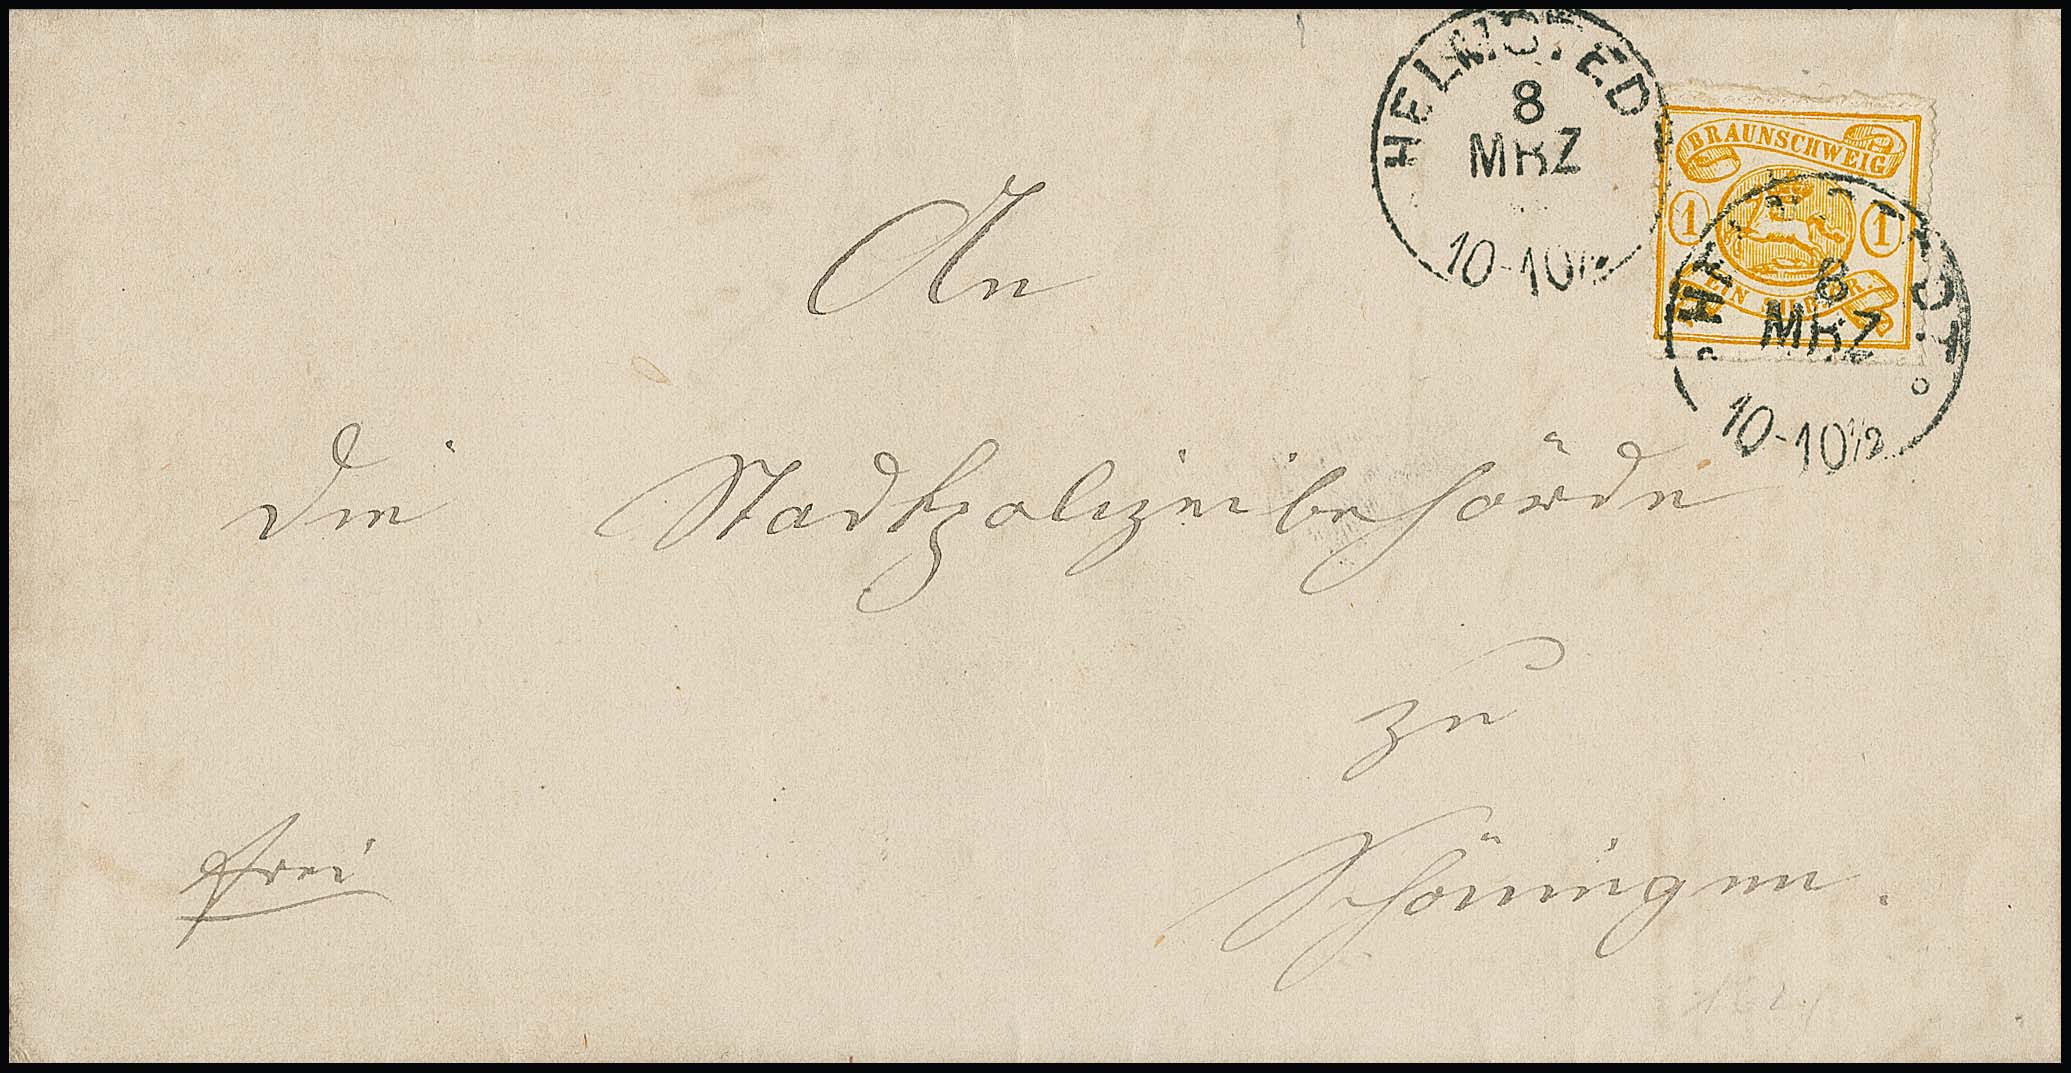 HELMSTED
8
MRZ
10-10½
BRAUNSCHWEIG
1 1
EIN SILBGR.
8
MRZ
10-10½
An
die Stadtpolizeibehörde
zu
frei Schöningen.